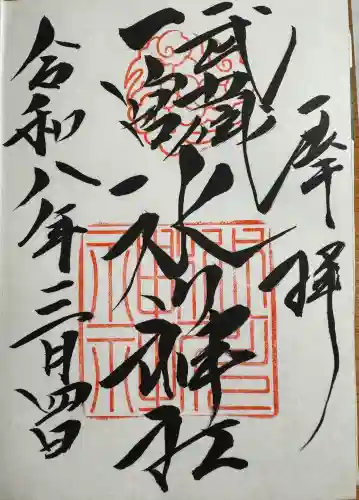 奉拝
武蔵
一宮
氷川神社
令和八年三月四日